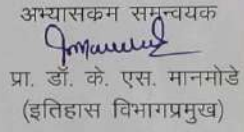 अभ्यासकम समन्वयक
प्रा. डॉ. के. एस. मानमोडे
(इतिहास विभागप्रमुख)